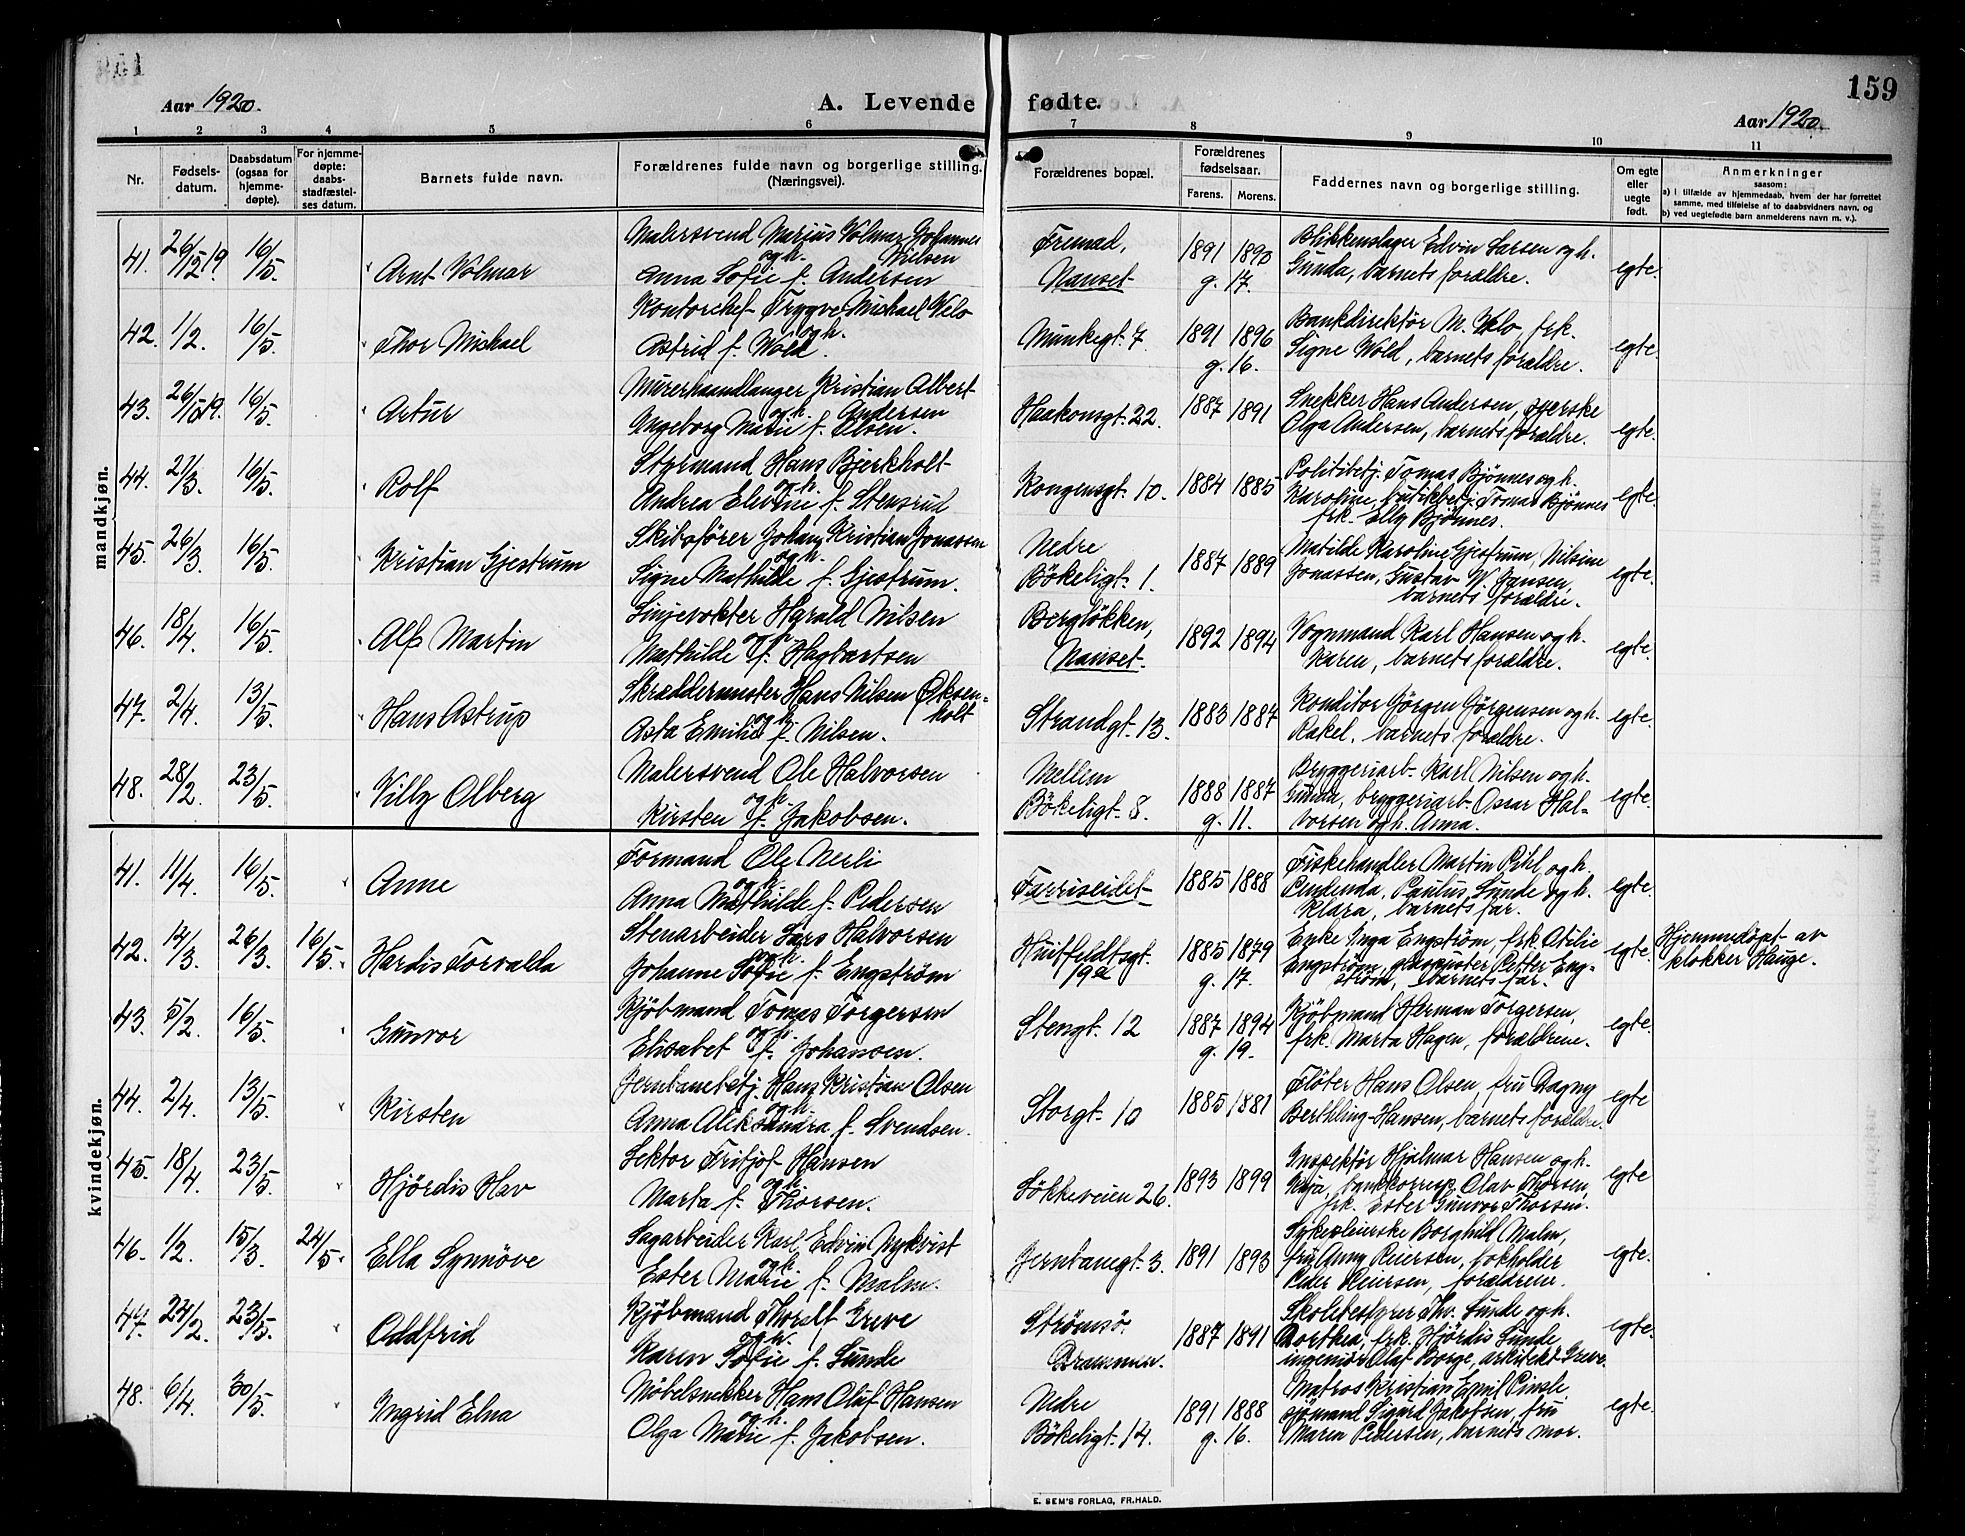 159
Aar 1920.
A. Levende fødte.
Aar 1920.
1 2 3 4 5 6 7 8 9 10 11
Nr.
Fødsels-
datum.
Daabsdatum
(ogsaa for
hjemme-
døpte).
For hjemme-
døpte:
daabs-
stadfæstel-
ses datum.
Barnets fulde navn.
Forældrenes fulde navn og borgerlige stilling.
(Næringsvei).
Forældrenes bopæl.
Forældrenes
fødselsaar.
Farens. Morens.
Faddernes navn og borgerlige stilling.
Om egte
eller
uegte
født.
Anmerkninger
saasom:
a) i tilfælde av hjemmedaab, hvem der har forrettet
samme, med tilføielse af to daabsvidners navn, og
b) ved uegtefødte barn anmelderens navn m. v.).
mandkjøn.
41. 26/12 19 16/5. Arnt Volmar
Malersvend Marius Volmar Johannes
og h. Nielsen
Anna Sofie f. Andersen
Fremad,
Nanset
1891 1890
g. 17.
Blikkenslager Edvin Larsen og h.
Gunda, barnets forældre.
egte.
42. 1/2. 16/5. Thor Michael
Kontorchef Trygve Michael Velo
og h.
Astrid f. Wold.
Munkegt. 7
1891 1896
g. 16.
Bankdirektör M. Velo, frk.
Signe Wold, barnets forældre.
egte.
43. 26/10 19. 16/5. Artur
Murerhaandlanger Kristian Albert
og h. Andersen
Ingeborg Marie f. Olsen.
Haakonsgt. 22.
1887 1891
Snekker Hans Andersen, syerske
Olga Andersen, barnets forældre.
egte.
44. 27/3. 16/5. Rolf
Styrmand Hans Bjerkholt
og h.
Andrea Elevine f. Stensrud
Kongensgt. 10.
1884 1885
Politibetj. Tomas Bjönnes og h.
Karoline, butikbetj. Tomas Bjönnes
frk. Elly Bjönnes.
egte.
45. 26/3. 16/5. Kristian Gjestrum
Skibsförer Johan Kristian Jonassen
og h.
Signe Mathilde f. Gjestrum.
Nedre
Bökeligt. 1.
1887 1889
Matilde Karoline Gjestrum, Nilsine
Jonassen, Gustav W. Jansen,
barnets forældre.
egte.
46. 18/4. 16/5. Alf Martin
Linjevokter Harald Nilsen
og h.
Mathilde f. Hagbartsen
Berglökken,
Nanset.
1892 1894
Vognmand Karl Hansen og h.
Karen, barnets forældre.
egte.
47. 2/4. 13/5. Hans Astrup
Skræddermester Hans Nilsen Oksen-
og h. holt
Asta Emilie f. Nilsen.
Strandgt. 13.
1883 1887
Konditor Jörgen Jörgensen og h.
Rakel, barnets forældre.
egte.
48. 28/2. 23/5. Villy Olberg
Malersvend Ole Halvorsen
og h.
Kirsten f. Jakobsen.
Mellem
Bökeligt. 8.
1888 1887
g. 11.
Bryggeriarb. Karl Nilsen og h.
Gunda, bryggeriarb. Ossar Hal-
vorsen og h. Anna.
egte.
kvindekjøn.
41. 11/4. 16/5. Anne
Formand Ole Nerli
og h.
Anna Mathilde f. Pedersen
Farriseidet
1885 1888
Fiskehandler Martin Pihl og h.
Paulus Sunde og h.
Klara, barnets far.
egte.
42. 14/3. 26/3. 16/5. Hardis Torvalda
Stenarbeider Lars Halvorsen
og h.
Johanne Sofie f. Engström
Huitfeldtsgt.
19a
1885 1879
g. 17.
Enke Inga Engström, frk. Otilie
Engström, glaspuster Petter Eng-
ström, barnets far.
egte.
Hjemmedöpt av
klokker Hauge.
43. 5/2. 16/5. Gunvor
Kjöbmand Tomas Torgersen
og h.
Elisabet f. Johansen.
Stengt. 12
1887 1894
g. 19.
Kjöbmand Herman Torgersen,
frk. Marta Hagen, forældrene.
egte.
44. 2/4. 13/5. Kirsten
Jernbanebetj. Hans Kristian Olsen
og h.
Anna Aleksandra f. Svendsen.
Storgt. 10
1885 1881
Flöter Hans Olsen, fru Dagny
Berthling-Hansen, barnets forældre.
egte
45. 18/4. 23/5. Hjördis Hav
Lektor Fritjof Hansen
og h.
Marta f. Thorsen.
Lökkeveien 26.
1893 1899
Inspektör Hjalmar Hansen og h.
Maja, bankkorresp. Olav Thorsen,
frk. Ester Gunvor Thorsen.
egte
46. 1/2. 15/3. 24/5. Ella Synnöve
Sagarbeider Karl Edvin Nykvist
og h.
Ester Marie f. Malm.
Jernbanegt. 3.
1891 1893
Sykepleierske Borghild Malm,
fru Anny Reiersen, bokholder
Peder Reiersen, forældrene.
egte.
47. 24/2. 23/5. Oddfrid
Kjöbmand Thoralf Greve
og h.
Karen Sofie f. Sunde
Strömsö.
Drammen.
1887 1891
Skolebestyrer Thv. Sunde og h.
Dorthea, frk. Hjördis Sunde,
ingeniör Olaf Borge, arkitekt Greve.
egte.
48. 6/4. 30/5. Ingrid Elna
Möbelsnekker Hans Olaf Hansen
og h.
Olga Marie f. Jakobsen.
Nedre
Bökeligt. 14.
1891 1888
g. 16.
Matros Kristian Emil Pinsle,
sjömand Sigurd Jakobsen, fru
Maren Pedersen, barnets mor.
egte.
E. SEM'S FORLAG, FR.HALD.